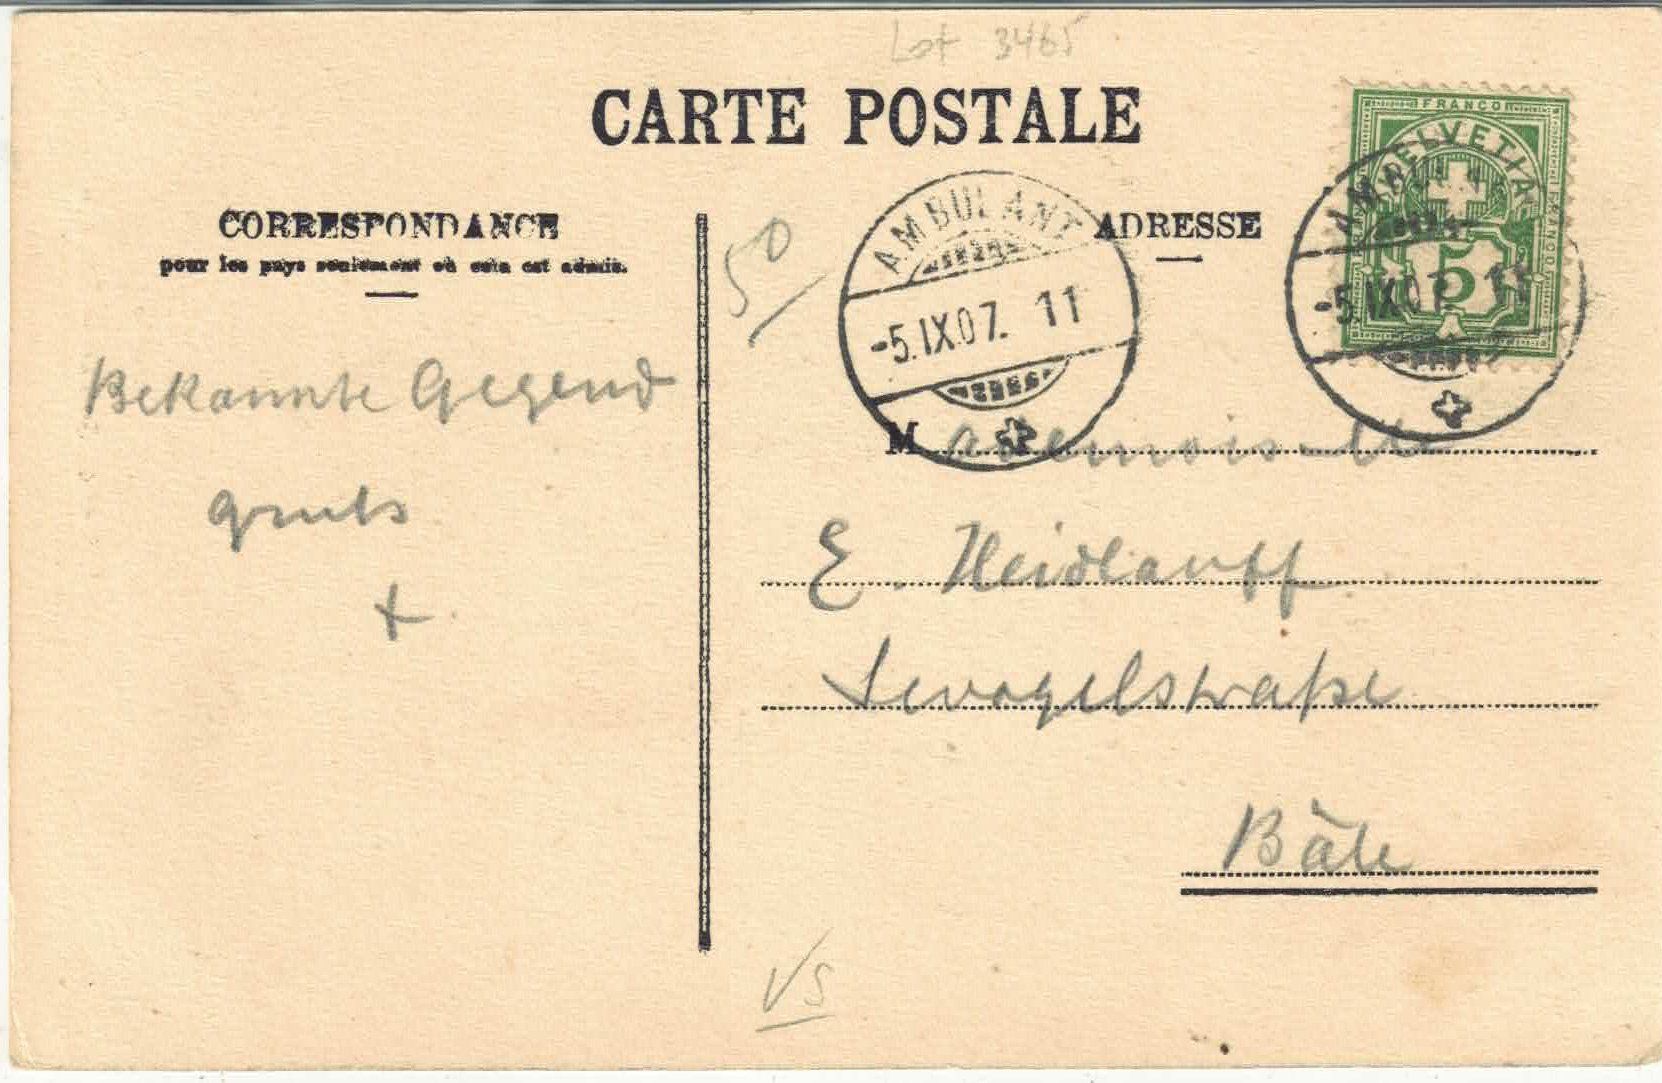 Lot 3465
CARTE POSTALE
CORRESPONDANCE
pour les pays seulement où cela est admis.
ADRESSE
50
AMBULANT
-5.IX.07. 11
FRANCO
HELVETIA
5
FRANCO
AMBULANT
-5.IX.07. 11
Bekannte Gegend
M ademoiselle
E. Heidlauff
Sevogelstraße
Bâle
VS